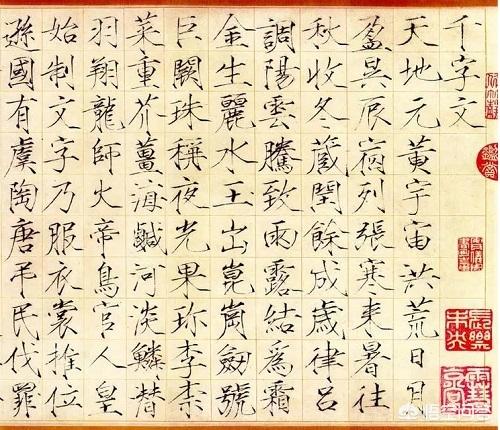 千字文
天地元黃宇宙洪荒日月
盈昃辰宿列張寒來暑往
秋收冬藏閏餘成歲律呂
調陽雲騰致雨露結為霜
金生麗水玉出崑崗劍號
巨闕珠稱夜光果珍李柰
菜重芥薑海鹹河淡鱗潛
羽翔龍師火帝鳥官人皇
始制文字乃服衣裳推位
遜國有虞陶唐弔民伐罪
悟空问答